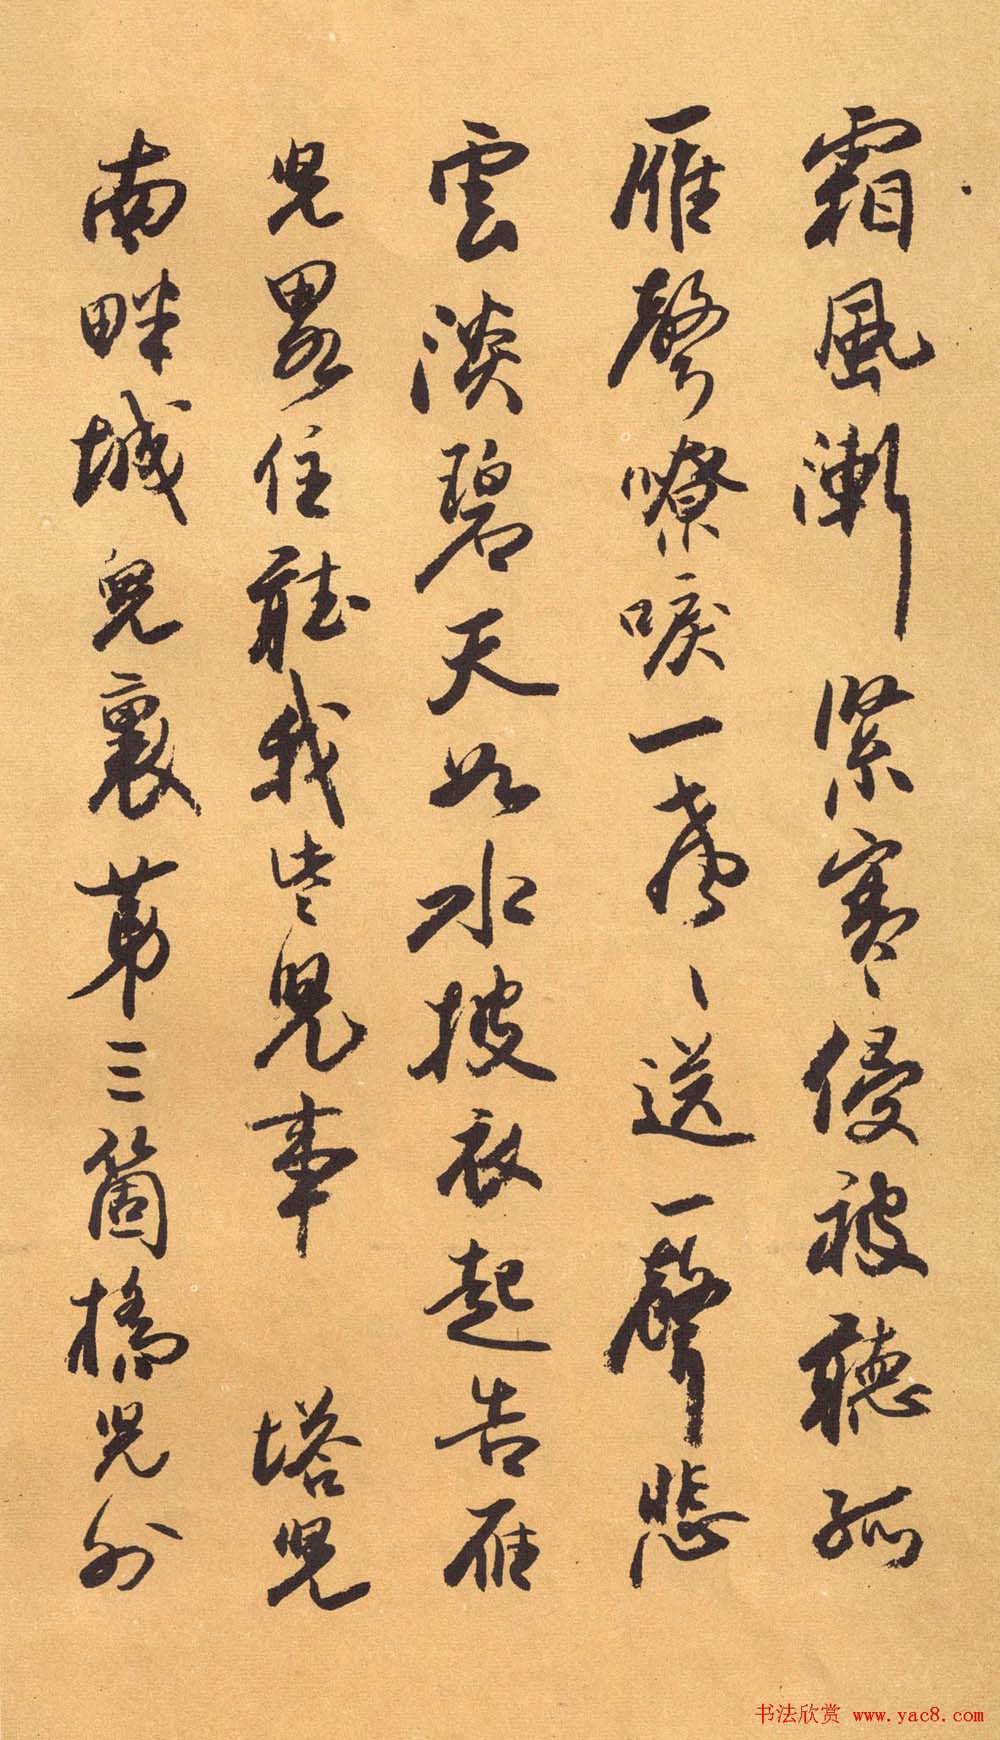 霜風漸緊寒侵被聽孤
雁聲嘹唳一聲聲送一聲悲
雲淡碧天如水披衣起告雁
兒畧住聽我些兒事 塔兒
南畔城兒裏第三箇橋兒外
书法欣赏 www.yac8.com